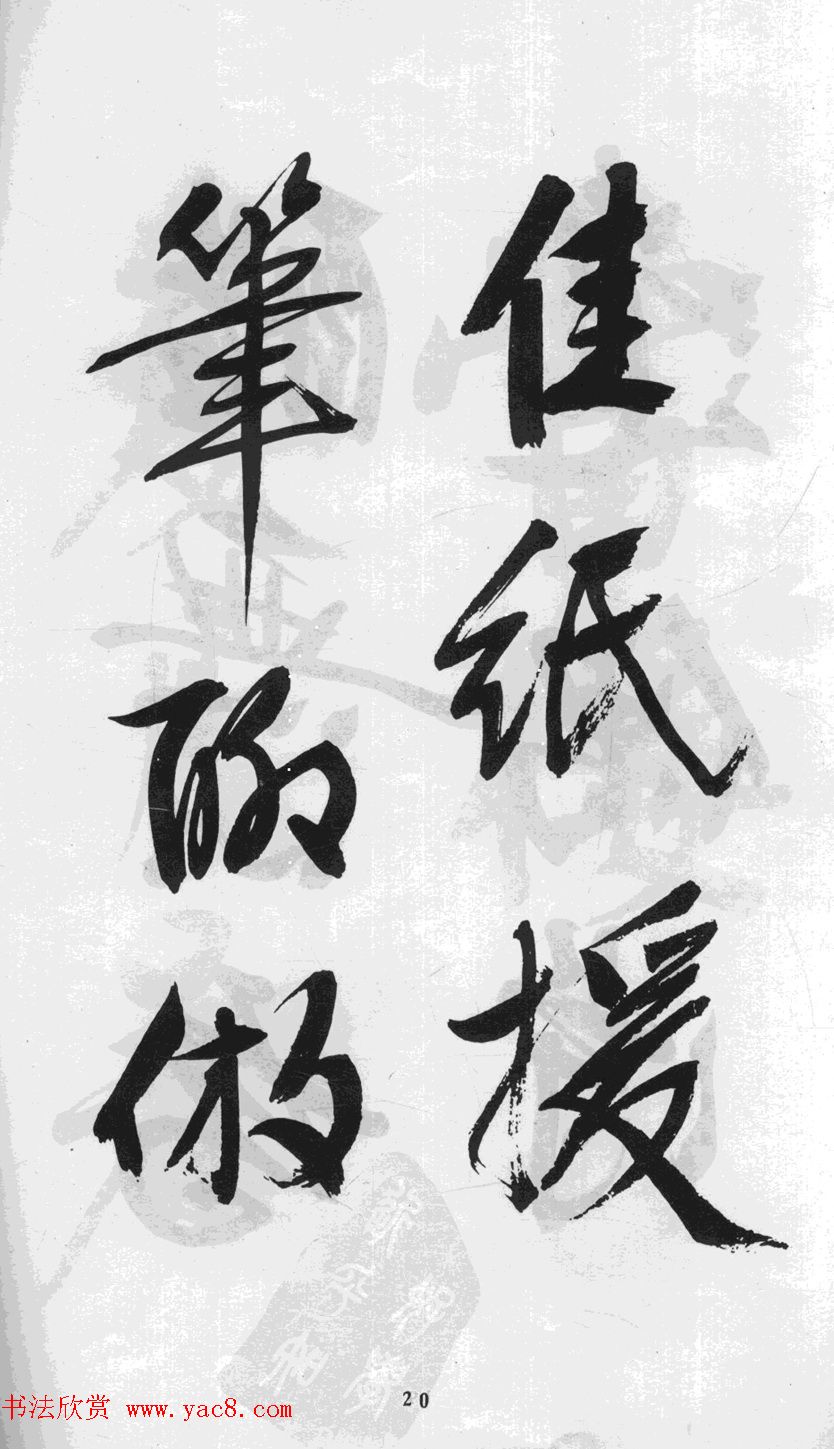 佳纸援
筆聊倣
20
书法欣赏 www.yac8.com